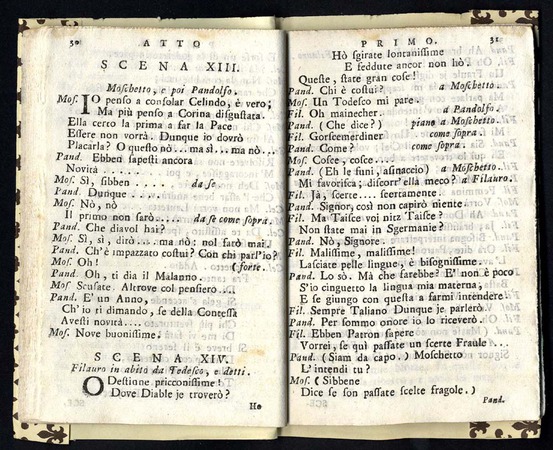 30 ATTO
SCENA XIII.
Moschetto, e poi Pandolfo.
Mos. IO penso a consolar Celindo, è vero;
Ma più penso a Corina disgustata.
Ella certo la prima a far la Pace
Essere non vorrà. Dunque io dovrò
Placarla? O questo nò... ma sì... ma nò...
Pand. Ebben sapesti ancora
Novità .....
Mos. Sì, sibben ...... da se
Pand. Dunque ....
Mos. Nò, nò
Il primo non sarò..... da se come sopra.
Pand. Che diavol hai?
Mos. Sì, sì, dirò.... ma nò: nol farò mai.
Pand. Ch'è impazzato costui? Con chi parl'io?
Mos. Oh! (forte.
Pand. Oh, ti dia il Malanno.
Mos Scusate. Altrove col pensiero....
Pand. E' un Anno,
Ch'io ti dimando, se della Contessa
Avesti novità....
Mos. Nove buonissime.
SCENA XIV.
Filauro in abito da Tedesco, e detti.
O Destine pricconissime!
Dove Diable je troverò?
Ho
PRIMO. 31
Hò sgirate lontanissime
E feddute ancor non hò.
Queste, state gran cose!
Pand. Chi è costui? a Moschetto.
Mos. Un Todesco mi pare. a Pandolfo.
Fil. Oh mainecher.
Pand. (Che dice?) piano a Moschetto.
Fil. Gorscemerdiner come sopra.
Pand. Come? come sopra.
Mos. Cosce, cosce....
Pand. (Eh le funi, asinaccio) a Moschetto.
Mi favorisca; discorr'ella meco? a Filauro.
Fil. Jà, scerte.... scertamente.
Pand. Signor, così non capirò niente.
Fil. Ma Taisce voi nitz Taisce?
Non state mai in Sgermanie?
Pand. Nò, Signore.
Fil. Malissime, malissime!
Lasciate pelle lingue, è bisognissime.
Pand. Lo sò. Mà che farebbe? E' non è poco
S'io cinguetto la lingua mia materna;
E se giungo con questa a farmi intendere.
Fil. Sempre Taliano Dunque je parlerò.
Pand. Per sommo onore io lo riceverò.
Fil. Ebben Patron sapere
Vorrei, se quì passate un scerte Fraule...
Pand. (Siam da capo.) Moschetto
L' intendi tu?
Mos. (Sibbene
Dice se son passate scelte fragole.)
Pand.